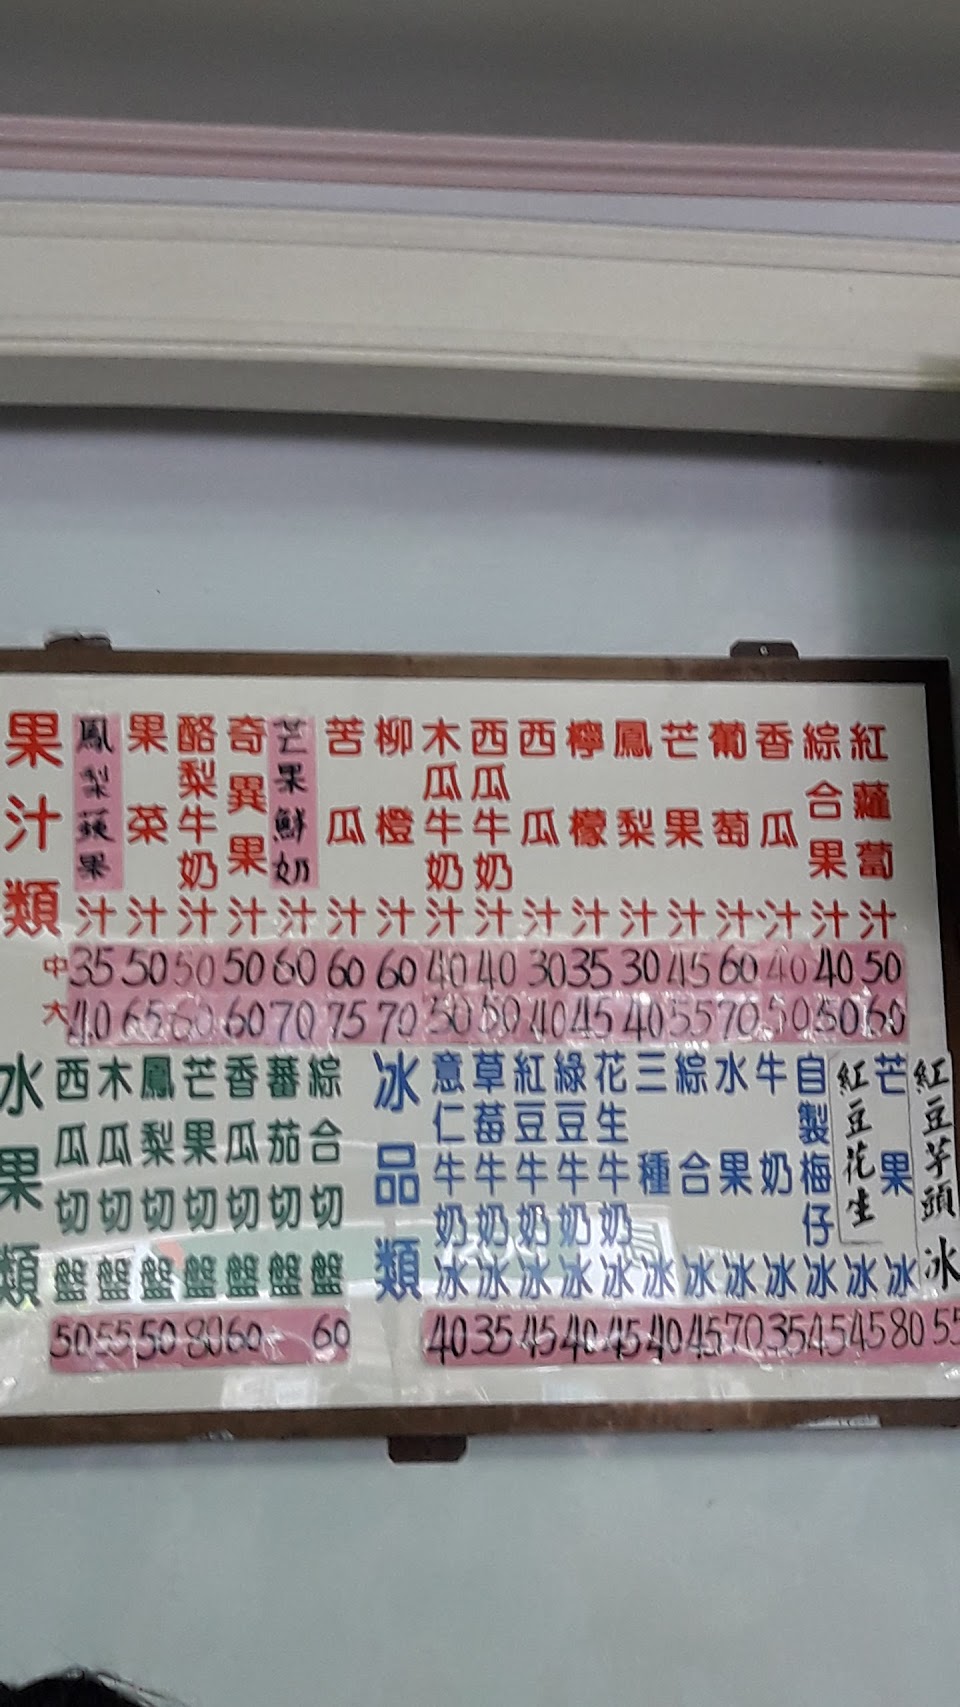 果汁類
鳳梨蘋果汁
果菜汁
酪梨牛奶汁
奇異果汁
芒果鮮奶汁
苦瓜汁
柳橙汁
木瓜牛奶汁
西瓜牛奶汁
西瓜汁
檸檬汁
鳳梨汁
芒果汁
葡萄汁
香瓜汁
綜合果汁
紅蘿蔔汁
中 35 50 50 50 60 60 60 40 40 30 35 30 45 60 40 40 50
大 40 65 60 60 70 75 70 50 50 40 45 40 55 70 50 50 60
水果類
西瓜切盤
木瓜切盤
鳳梨切盤
芒果切盤
香瓜切盤
蕃茄切盤
綜合切盤
50 55 50 80 60 60
冰品類
意仁牛奶冰
草莓牛奶冰
紅豆牛奶冰
綠豆牛奶冰
花生牛奶冰
三種冰
綜合冰
水果冰
牛奶冰
自製梅仔冰
紅豆花生冰
芒果冰
紅豆芋頭冰
40 35 45 40 45 40 45 70 35 45 45 80 55